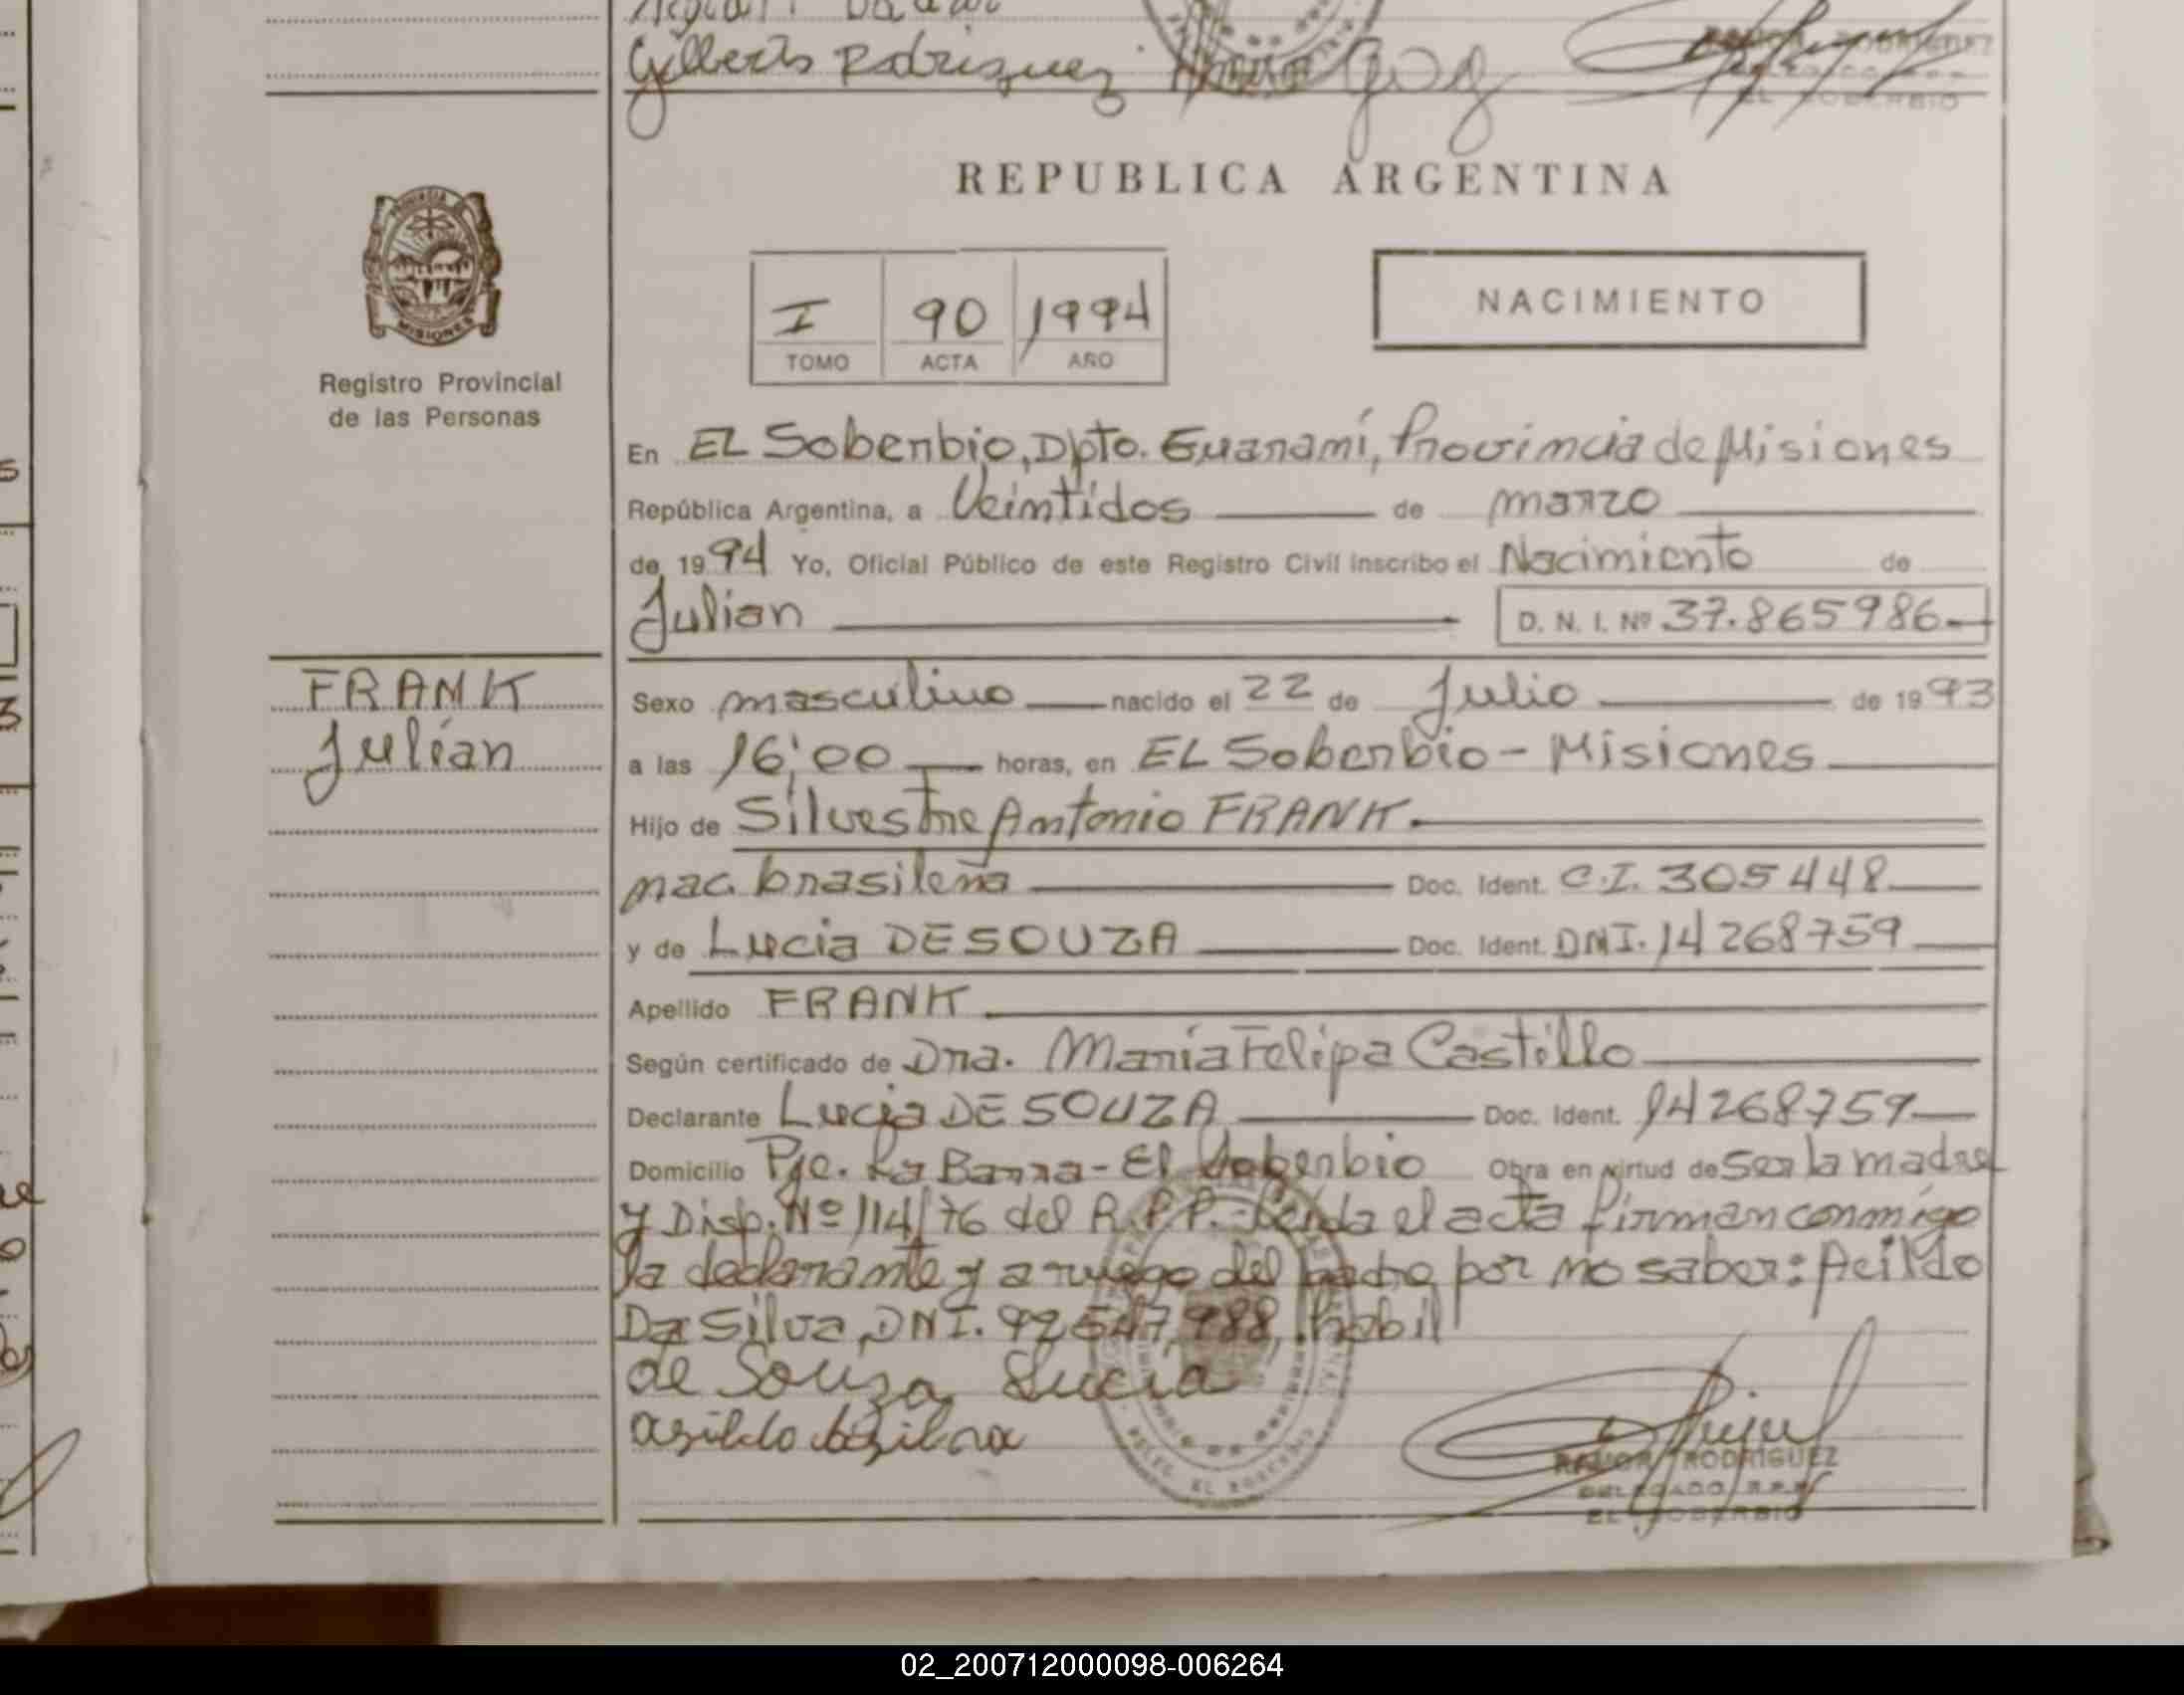 Gilberto Rodriguez
EL SOBERBIO
REPUBLICA ARGENTINA
PROVINCIA
MISIONES
Registro Provincial
de las Personas
I 90 1994
TOMO ACTA AÑO
NACIMIENTO
En EL Soberbio, Dpto. Guaraní, Provincia de Misiones
República Argentina, a Veintidos de marzo
de 1994 Yo, Oficial Público de este Registro Civil inscribo el Nacimiento de
Julian D. N. I. Nº 37.865986
FRANK
Julián
Sexo masculino nacido el 22 de Julio de 1993
a las 16:00 horas, en EL Soberbio - Misiones
Hijo de Silvestre Antonio FRANK.
nac. brasileña Doc. Ident. C.I. 305448
y de Lucia DE SOUZA Doc. Ident. DNI. 14268759
Apellido FRANK
Según certificado de Dra. María Felipa Castillo
Declarante Lucia DE SOUZA Doc. Ident. 14268759
Domicilio Pje. La Barra - El Soberbio Obra en virtud de ser la madre
y Disp. Nº 114/76 del R.P.P. - Leida el acta firman conmigo
la declarante y a ruego del padre por no saber: Acildo
Da Silva, DNI. 92547.988, habil
de Souza Lucia
RAMON RODRIGUEZ
DELEGADO R.P.P.
EL SOBERBIO
02_200712000098-006264